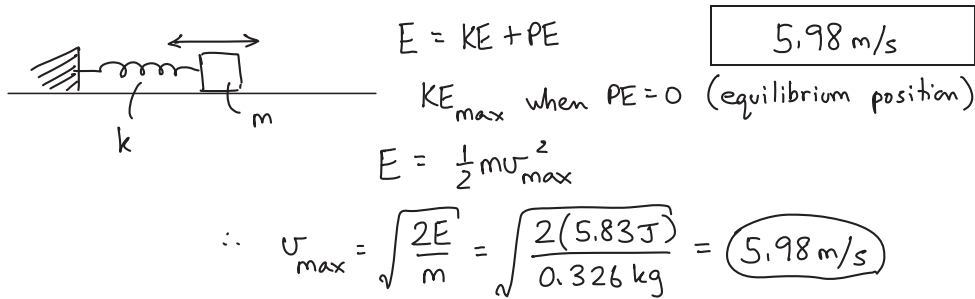 E = KE + PE
5.98 m/s
KE_max when PE = 0 (equilibrium position)
k
m
E = ½ mv²_max
∴ v_max = √(2E/m) = √(2(5.83 J)/0.326 kg) = 5.98 m/s